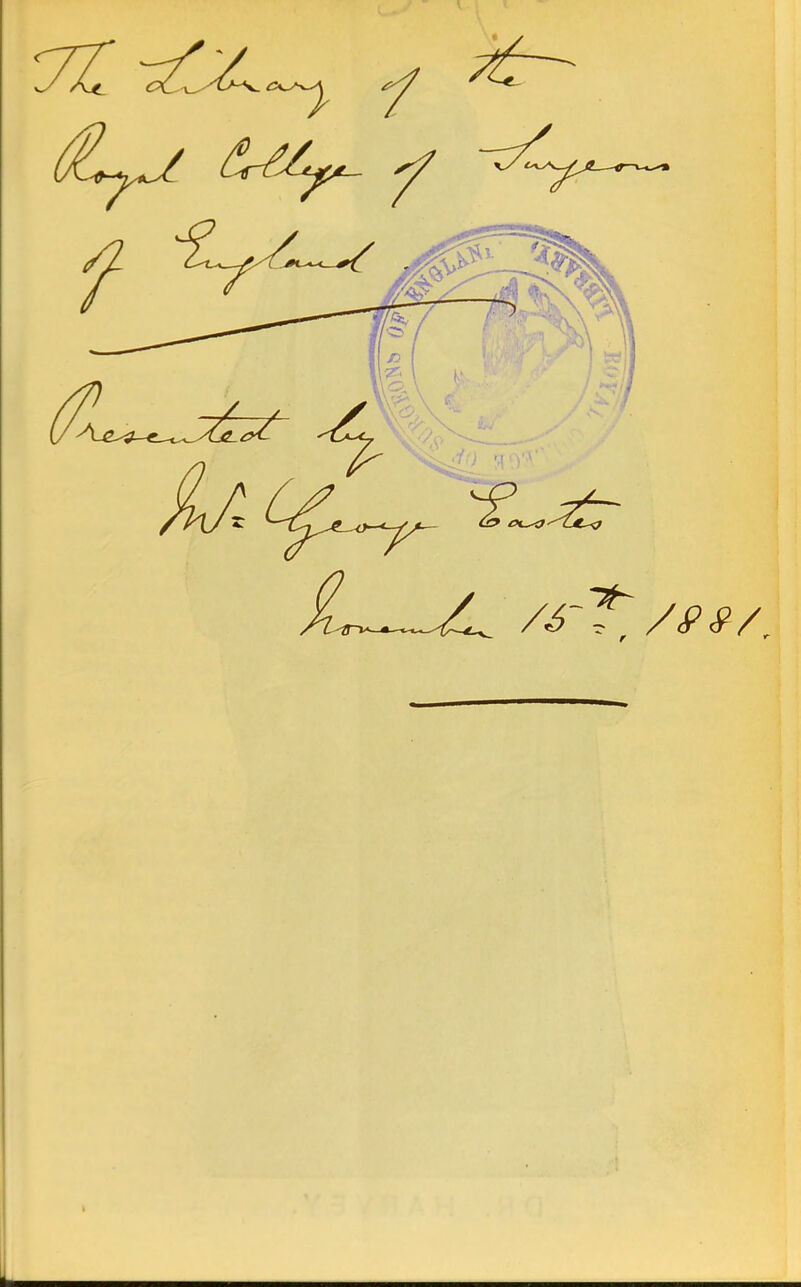 The Library of the
Royal College of Surgeons
of England.
Presented by
Mr. George Eastes
November 15th, 1881.
ROYAL COLLEGE OF SURGEONS OF ENGLAND LIBRARY.
DR. HARVEY.